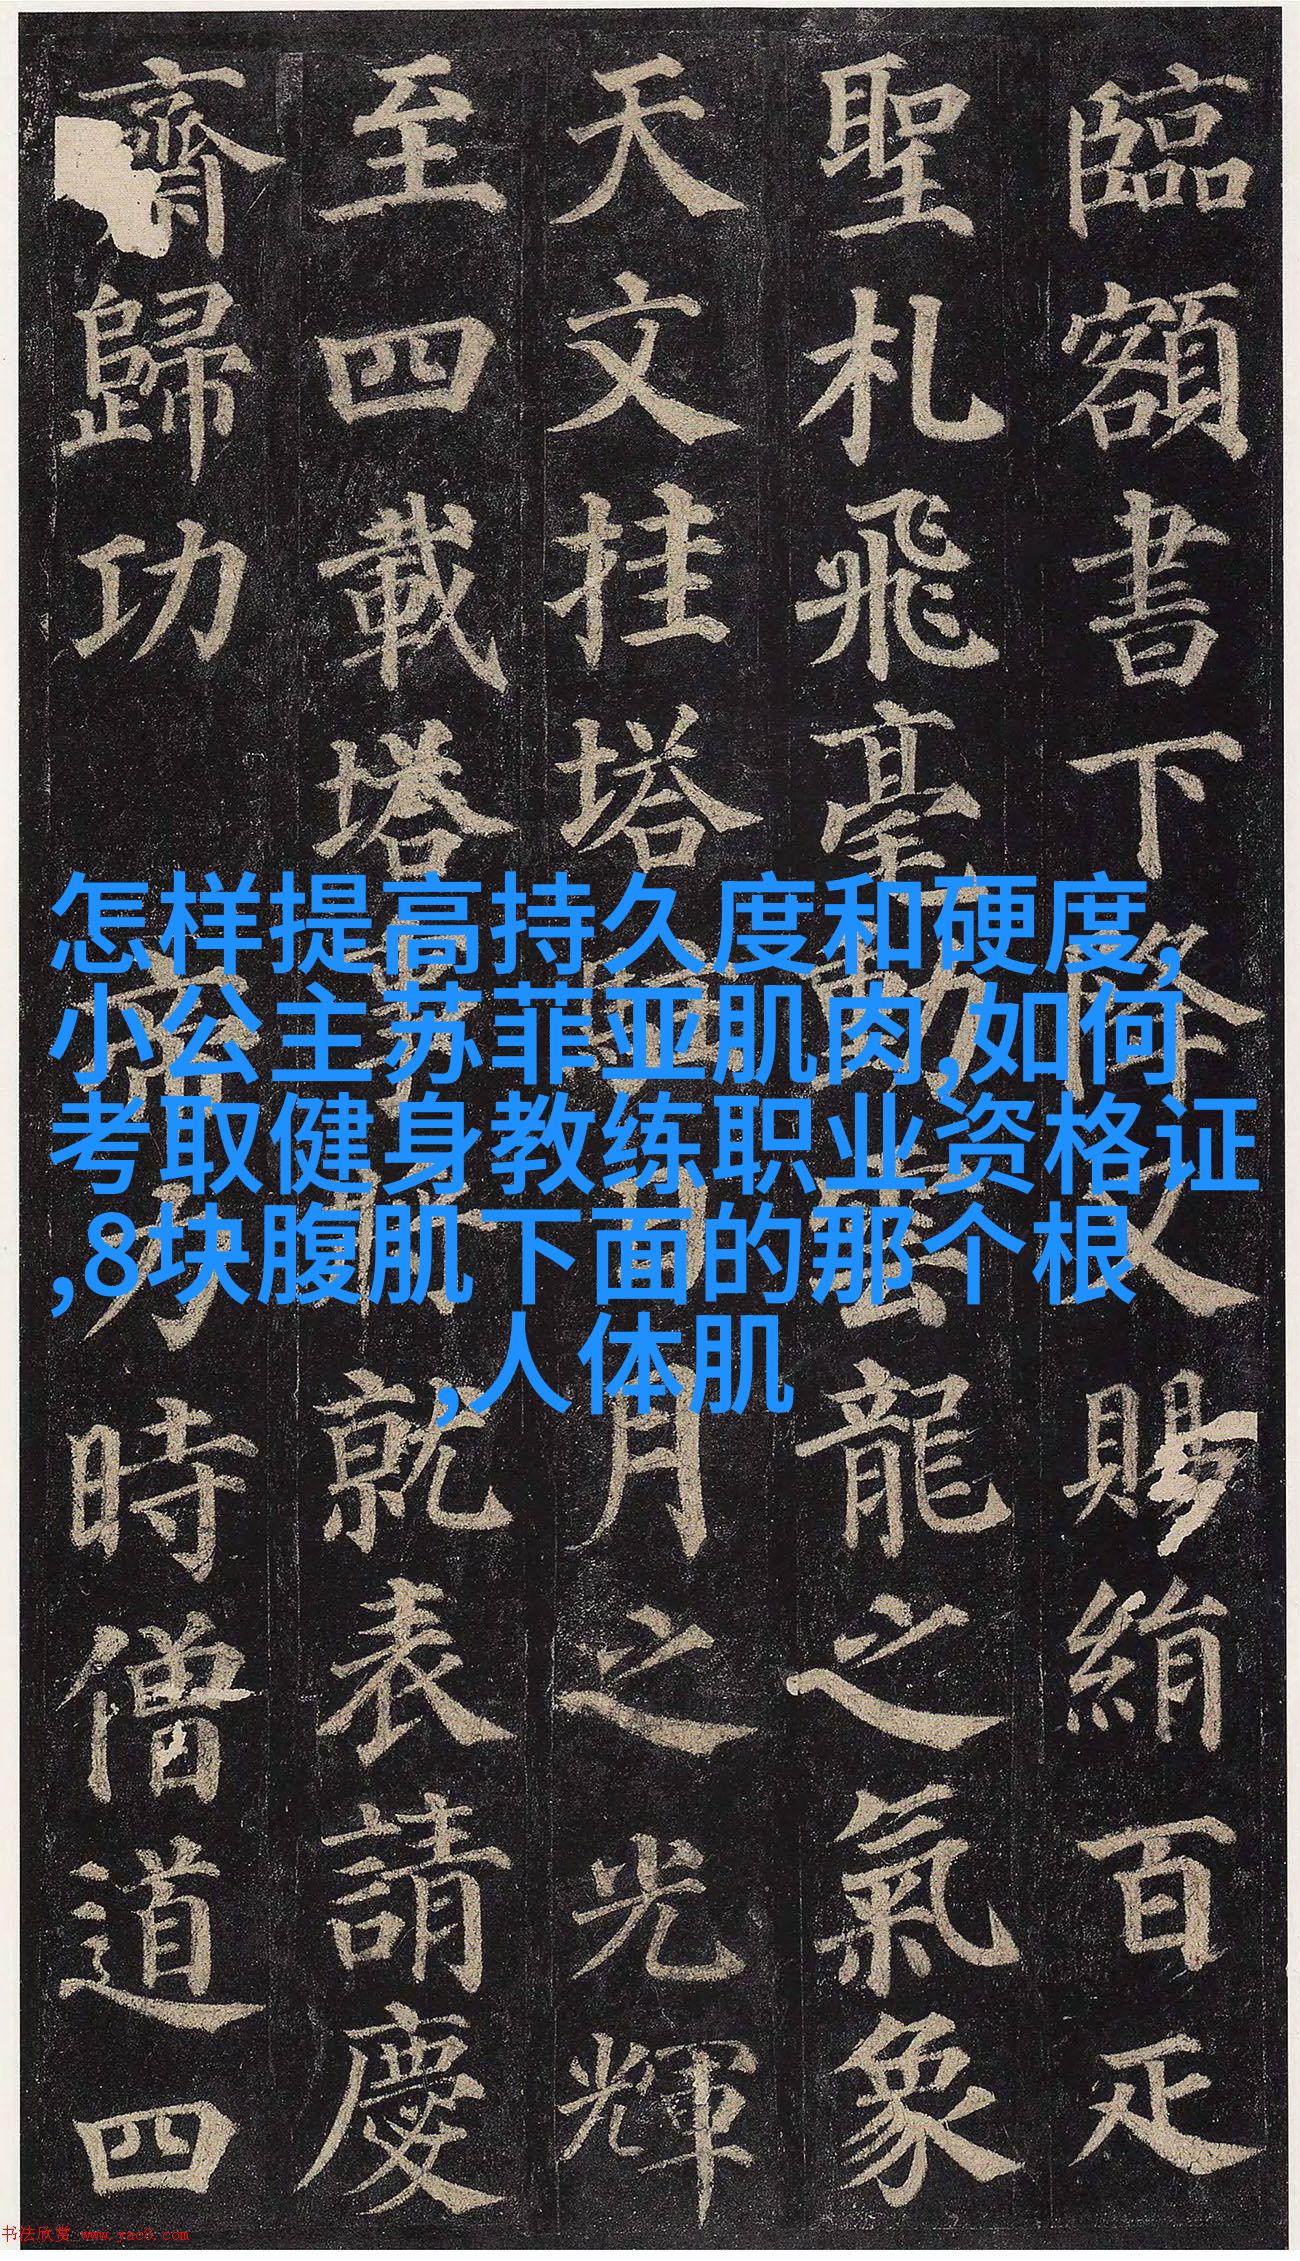 臨額書下降又賜絹百疋
聖札飛毫動雲龍之氣象
天文挂塔駐日月之光輝
至四載塔事將就表請慶
齋歸功 帝力時僧道四
怎样提高持久度和硬度,
小公主苏菲亚肌肉,如何
考取健身教练职业资格证
,8块腹肌下面的那个根
,人体肌
书法欣赏 www.yac8.com